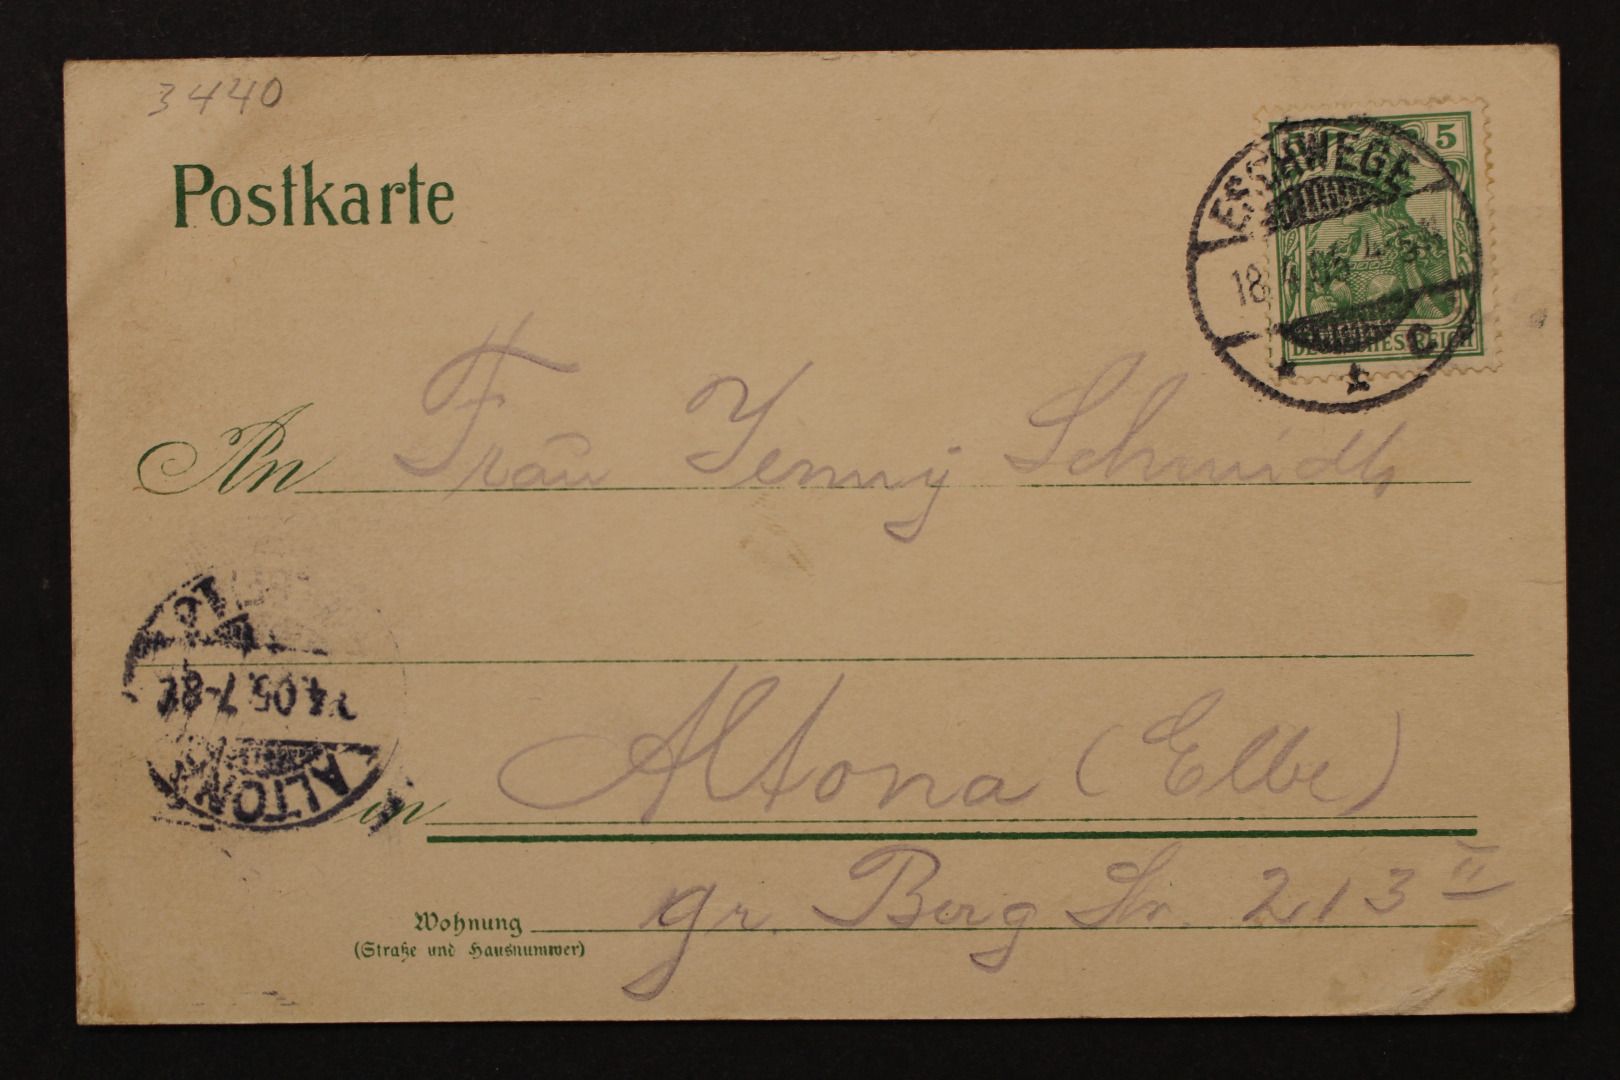 3440
Postkarte
5
ESCHWEGE
18.4.05 4-5N
* * C
DEUTSCHES REICH
An Frau Jenny Schmidt
4.05.7-8
ALTONA
in Altona (Elbe)
Wohnung gr. Berg Str. 213 II
(Straße und Hausnummer)